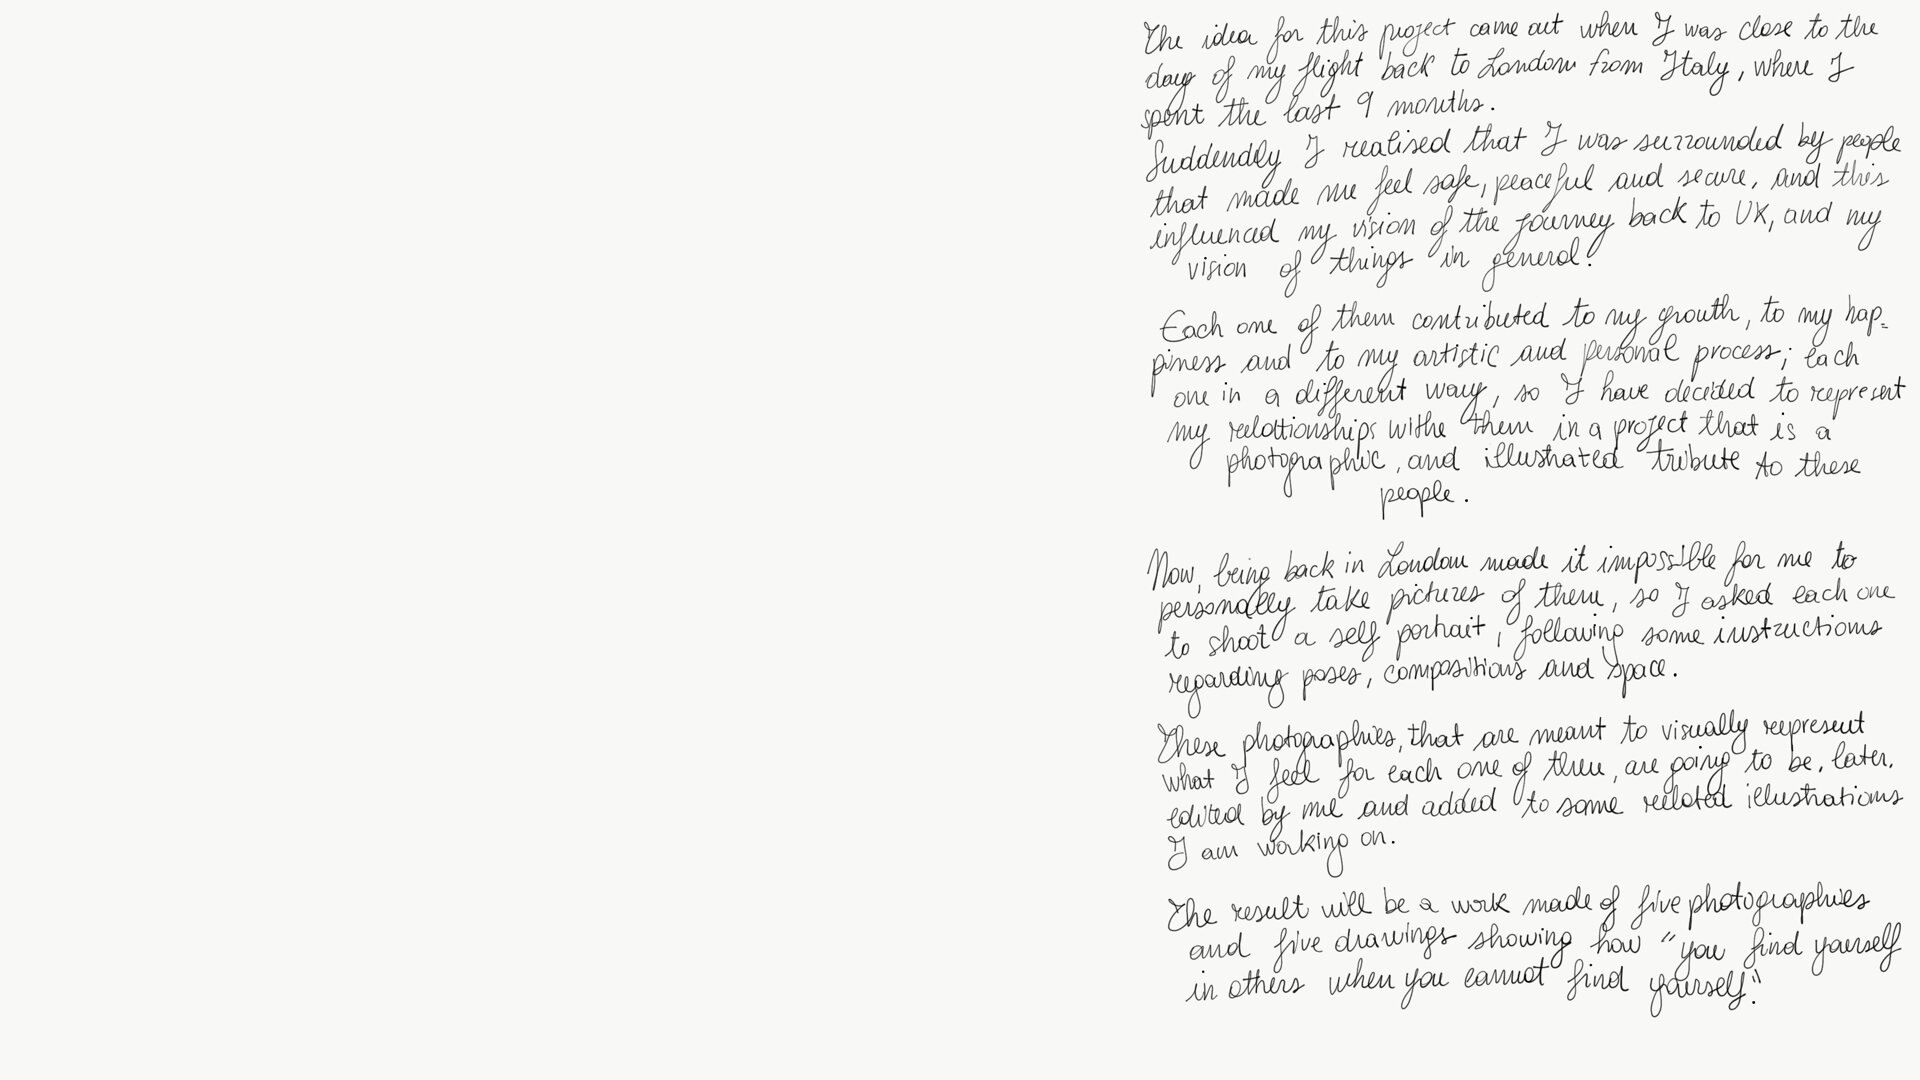 The idea for this project came out when I was close to the
day of my flight back to London from Italy, where I
spent the last 9 months.
Suddendly I realised that I was surrounded by people
that made me feel safe, peaceful and secure, and this
influenced my vision of the journey back to UK, and my
vision of things in general.
Each one of them contributed to my growth, to my hap-
piness and to my artistic and personal process; each
one in a different way, so I have decided to represent
my relationships withe them in a project that is a
photographic, and illustrated tribute to these
people.
Now, being back in London made it impossible for me to
personally take pictures of them, so I asked each one
to shoot a self portrait, following some instructions
regarding poses, compositions and space.
These photographies, that are meant to visually represent
what I feel for each one of them, are going to be, later,
edited by me and added to some related illustrations
I am working on.
The result will be a work made of five photographies
and five drawings showing how "you find yourself
in others when you cannot find yourself".